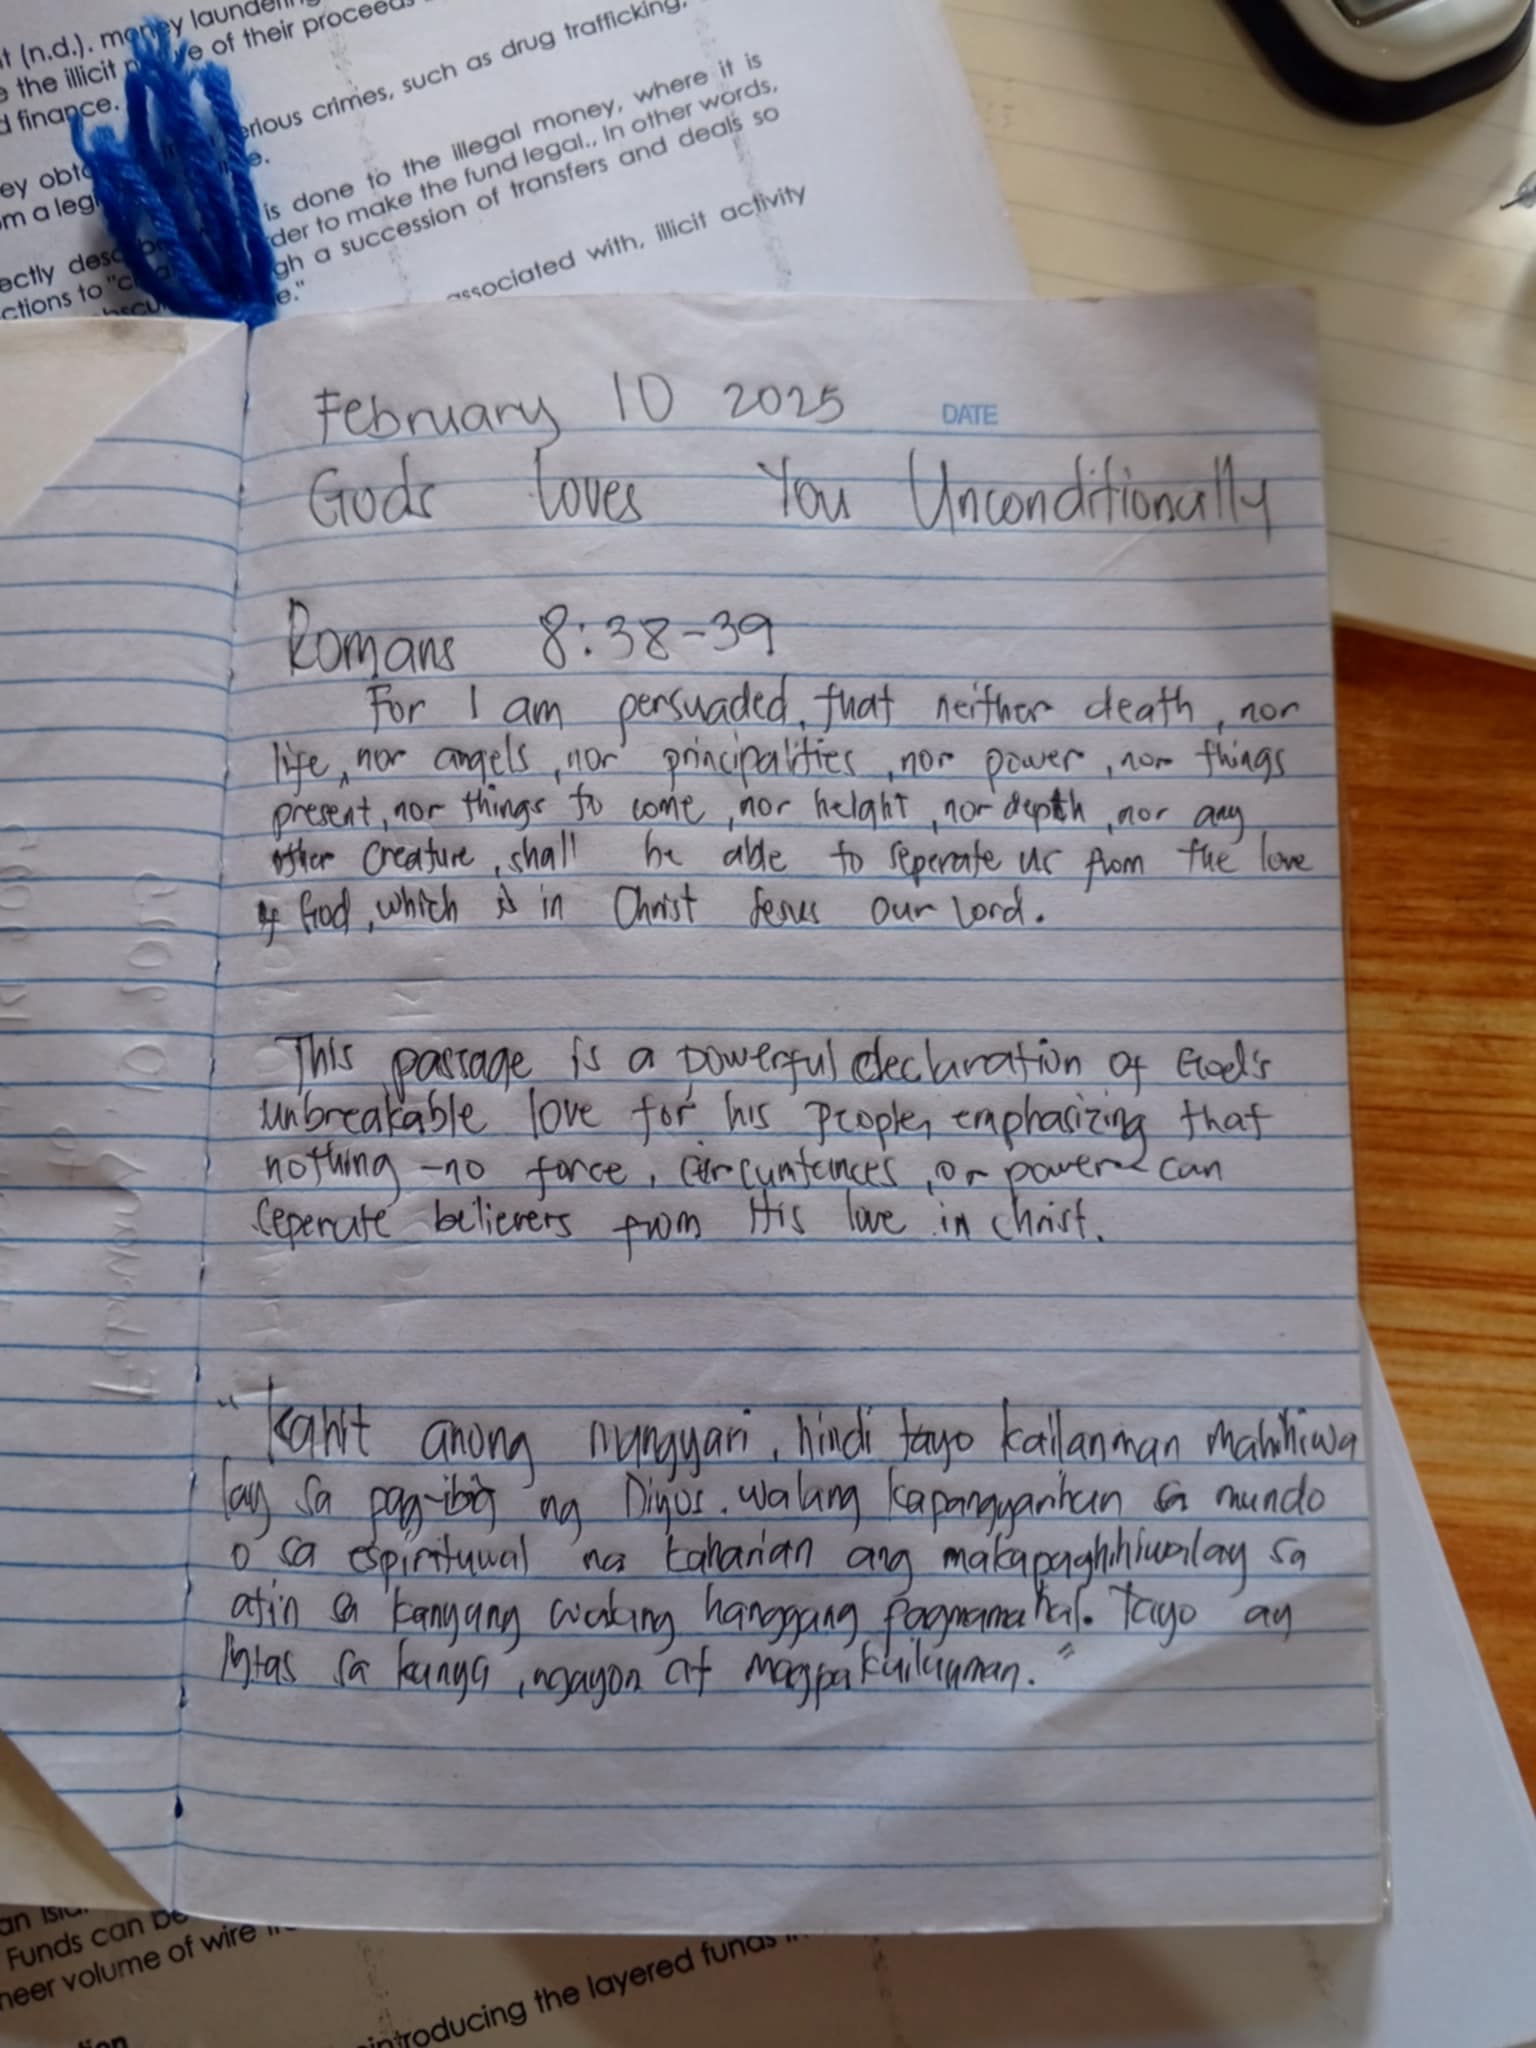 t (n.d.). money laundering
e the illicit of their proceeds
d finance.
erious crimes, such as drug trafficking,
ey obt
om a leg is done to the illegal money, where it is
ectly desc der to make the fund legal., In other words,
ctions to "c gh a succession of transfers and deals so
obscu e."
associated with, illicit activity
February 10 2025 DATE
Gods loves You Unconditionally
Romans 8:38-39
For I am persuaded, that neither death, nor
life, nor angels, nor principalities, nor power, nor things
present, nor things to come, nor height, nor depth, nor any
other creature, shall be able to seperate us from the love
of God, which is in Christ Jesus our Lord.
This passage is a powerful declaration of God's
unbreakable love for his people, emphasizing that
nothing -no force, circumtances, or power- can
seperate believers from His love in christ.
"Kahit anong mangyari, hindi tayo kailanman mahihiwa
lay sa pag-ibig ng Diyos. walang kapangyarihan sa mundo
o sa espirituwal na kaharian ang makapaghihiwalay sa
atin sa kanyang walang hanggang pagmamahal. Tayo ay
ligtas sa kanya, ngayon at magpakailanman."
Funds can be
heer volume of wire
introducing the layered funds